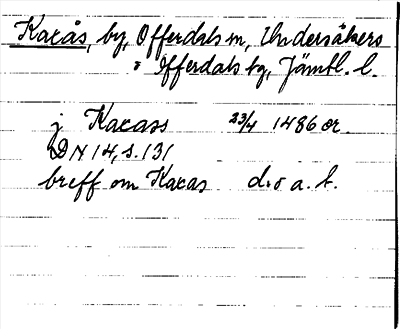 Kaxås, by, Offerdals sn, Undersåkers
o Offerdals tg, Jämtl. l.
j Kaxass 23/4 1486 or.
DN 14, s. 131
breff om Kaxas d.o a. t.